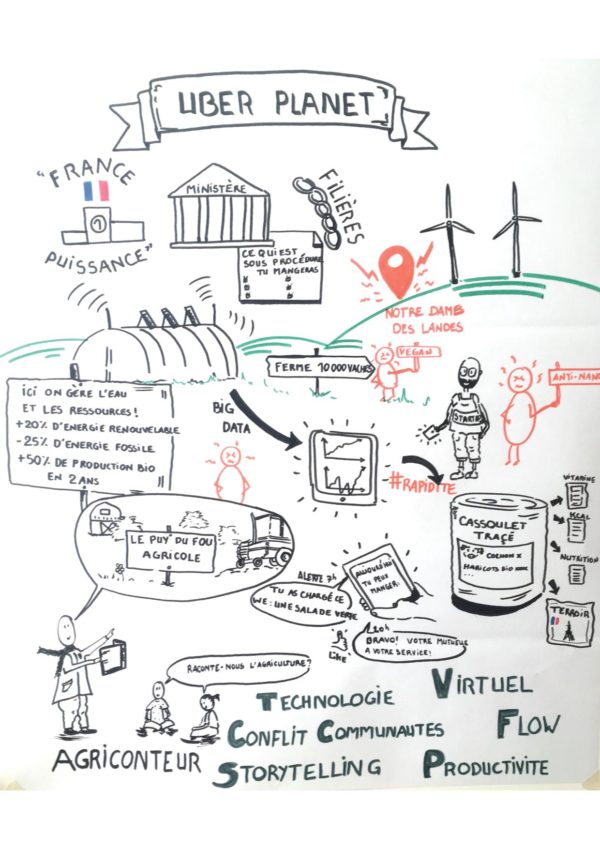 UBER PLANET
"FRANCE
1
PUISSANCE"
MINISTÈRE
FILIÈRES
CE QUI EST
SOUS PROCÉDURE
TU MANGERAS
NOTRE DAME
DES LANDES
FERME 10000 VACHES
VEGAN
STARTE
ANTI-NANO
ICI ON GÈRE L'EAU
ET LES RESSOURCES!
+20% D'ÉNERGIE RENOUVELABLE
-25% D'ÉNERGIE FOSSILE
+50% DE PRODUCTION BIO
EN 2 ANS
BIG
DATA
#RAPIDITE
CASSOULET
TRAÇÉ
COCHON X
HARICOTS BIO XXXX
VITAMINE
KCAL
NUTRITION
TERROIR
LE PUY DU FOU
AGRICOLE
ALERTE 7h
TU AS CHARGÉ CE
WE: UNE SALADE VERTE
AUJOURD'HUI
TU PEUX
MANGER:
20h
BRAVO! VOTRE MUTUELLE
A VOTRE SERVICE!
LIKE
RACONTE-NOUS L'AGRICULTURE?
AGRICONTEUR
TECHNOLOGIE
VIRTUEL
CONFLIT
COMMUNAUTES
FLOW
STORYTELLING
PRODUCTIVITE